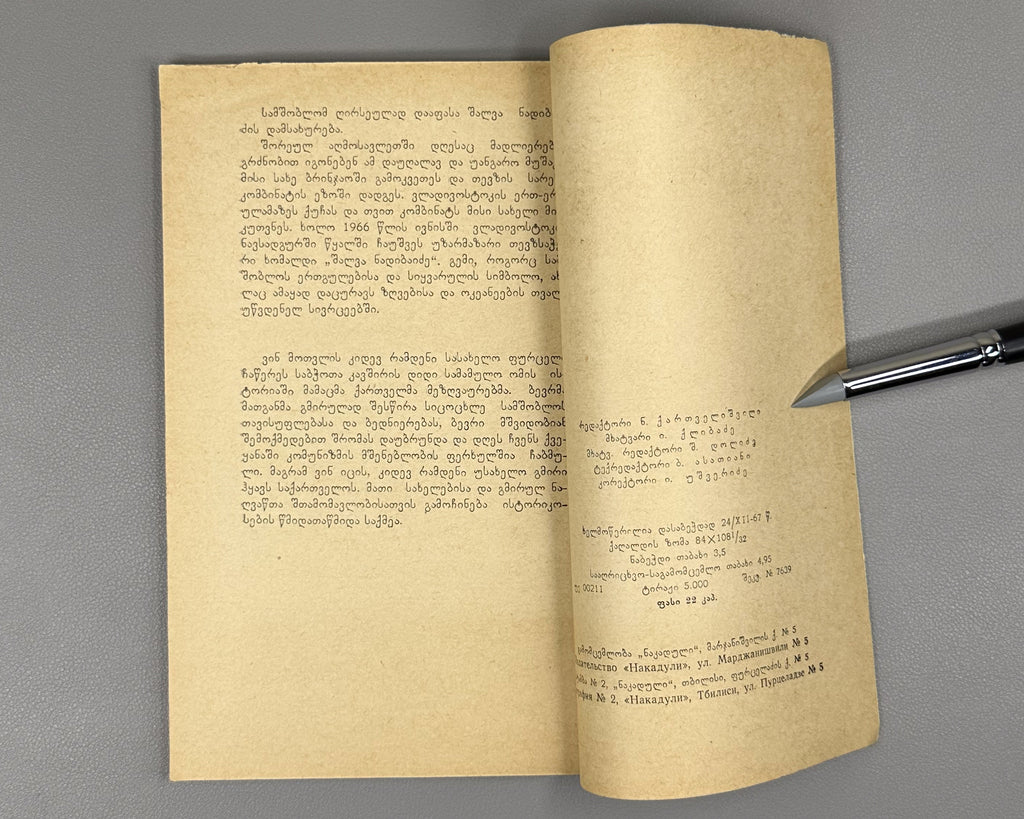 სამშობლომ ღირსეულად დააფასა შალვა
ძის დამსახურება.
შორეულ აღმოსავლეთში დღესაც
გრძნობით იგონებენ ამ დაუღალავ და უანგარო
მისი სახე ბრინჯაოში გამოკვეთეს და თევზის
კომბინატის ეზოში დადგეს. ვლადივოსტოკის
ულამაზეს ქუჩას და თვით კომბინატს მისი სახელი
კუთვნეს. ხოლო 1966 წლის ივნისში
ნავსადგურში წყალში ჩაუშვეს უზარმაზარი
რი ხომალდი „შალვა ნადიბაიძე“. გემი, როგორც
შობლოს ერთგულებისა და სიყვარულის სიმბოლო,
ლაც ამაყად დაცურავს ზღვებისა და ოკეანეების
უწვდენელ სივრცეებში.
ვინ მოთვლის კიდევ რამდენი სასახელო
ჩაწერეს საბჭოთა კავშირის დიდი სამამულო ომის ის-
ტორიაში მამაცმა ქართველმა მეზღვაურებმა.
მათგანმა გმირულად შესწირა სიცოცხლე
თავისუფლებასა და ბედნიერებას, ბევრი
შემოქმედებით შრომას დაუბრუნდა და დღეს ჩვენს ქვე-
ყანაში კომუნიზმის მშენებლობის ფერხულშია ჩაბმუ-
ლი. მაგრამ ვინ იცის, კიდევ რამდენი უსახელო გმირი
ჰყავს საქართველოს. მათი სახელებისა და გმირულ ნა-
ღვაწთა შთამომავლობისათვის გამოჩინება ისტორიკო-
სების წმიდათაწმიდა საქმეა.
რედაქტორი ნ. ქართველიშვილი
მხატვარი ი. ქლიბაძე
მხატვ. რედაქტორი შ. დოლიძე
ტექრედაქტორი ბ. ასათიანი
კორექტორი ი. უშვერიძე
ხელმოწერილია დასაბეჭდად 24/XII-67 წ.
ქაღალდის ზომა 84×108¹/₃₂
ნაბეჭდი თაბახი 3,5
სააღრიცხვო-საგამომცემლო თაბახი 4,95
00211 ტირაჟი 5.000 შეკვ. № 7639
ფასი 22 კაპ.
„ნაკადული“, მარჯანიშვილის ქ. № 5
«Накадули», ул. Марджанишвили № 5
№ 2, „ნაკადული“, თბილისი, ფურცელაძის ქ. № 5
№ 2, «Накадули», Тбилиси, ул. Пурцеладзе № 5